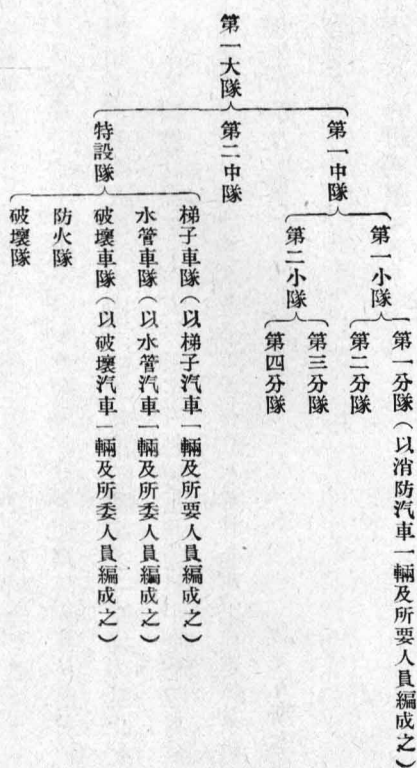 第一大隊
第一中隊
第一小隊
第一分隊（以消防汽車一輛及所要人員編成之）
第二分隊
第二小隊
第三分隊
第四分隊
第二中隊
特設隊
梯子車隊（以梯子汽車一輛及所要人員編成之）
水管車隊（以水管汽車一輛及所委人員編成之）
破壞車隊（以破壞汽車一輛及所委人員編成之）
防火隊
破壞隊